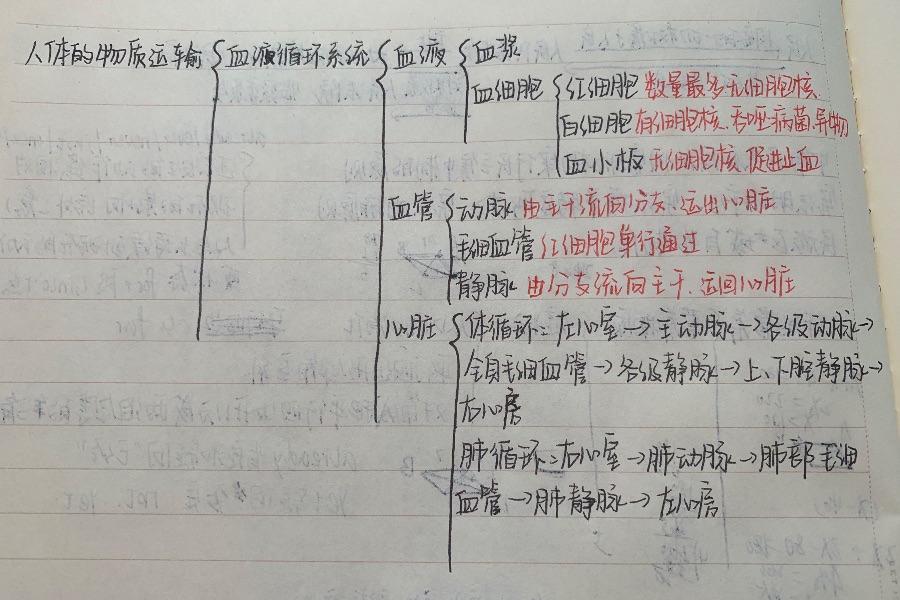 人体的物质运输 血液循环系统 血液 血浆
血细胞 红细胞 数量最多.无细胞核.
白细胞 有细胞核.吞噬病菌.异物
血小板 无细胞核.促进止血
血管 动脉 由主干流向分支.运出心脏
毛细血管 红细胞单行通过
静脉 由分支流向主干.运回心脏
心脏 体循环:左心室→主动脉→各级动脉→
全身毛细血管→各级静脉→上、下腔静脉→
右心房
肺循环:右心室→肺动脉→肺部毛细
血管→肺静脉→左心房